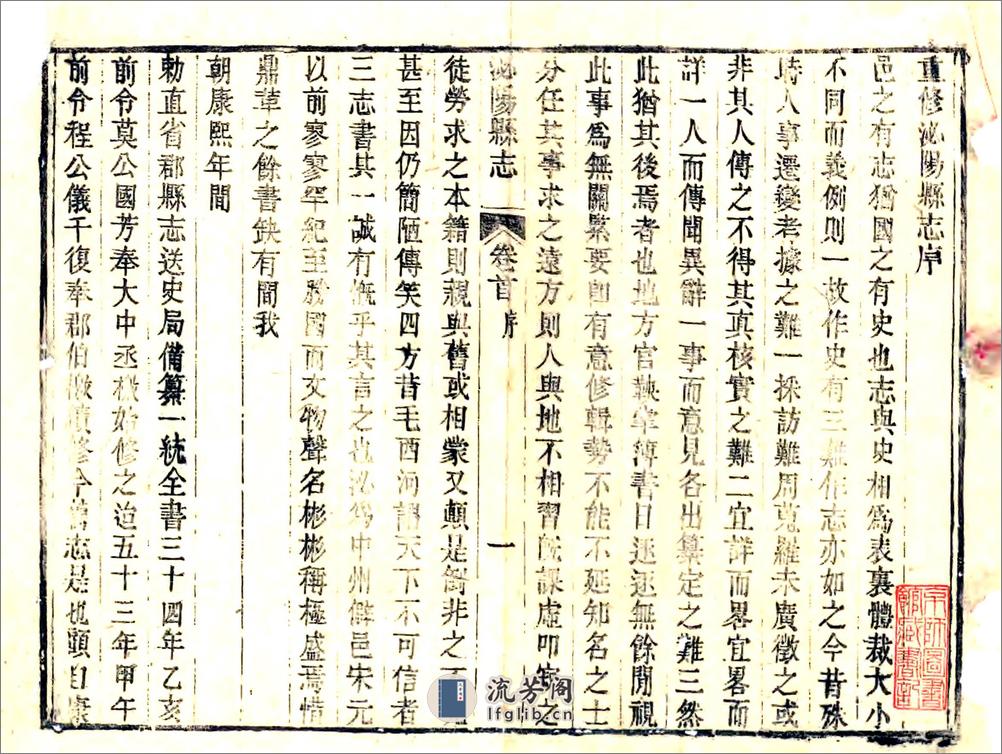 重修泌陽縣志序
邑之有志猶國之有史也志與史相爲表裏體裁大小
不同而義例則一故作史有三難作志亦如之今昔殊
時人事遷變考據之難一採訪難周蒐羅未廣徵之或
非其人傳之不得其真核實之難二宜詳而畧宜畧而
詳一人而傳聞異辭一事而意見各出纂定之難三然
此猶其後焉者也地方官鞅掌簿書日逐逐無餘閒視
此事爲無關繁要卽有意修輯勢不能不延知名之士
分任其事求之遠方則人與地不相習旣課虛叩寂之
泌陽縣志 卷首 序 一
徒勞求之本籍則親與舊或相蒙又顛是倒非之
甚至因仍簡陋傳笑四方昔毛西河謂天下不可信者
三志書其一誠有慨乎其言之也泌爲中州僻邑宋元
以前寥寥罕紀至勝國而文物聲名彬彬稱極盛焉惜
鼎革之餘書缺有間我
朝康熙年間
勅直省郡縣志送史局備纂一統全書三十四年乙亥
前令莫公國芳奉大中丞檄始修之迨五十三年甲午
前令程公儀千復奉郡伯檄續修今舊志是也顧自康
京師圖書館藏書記
流芳阁
lfglib.cn